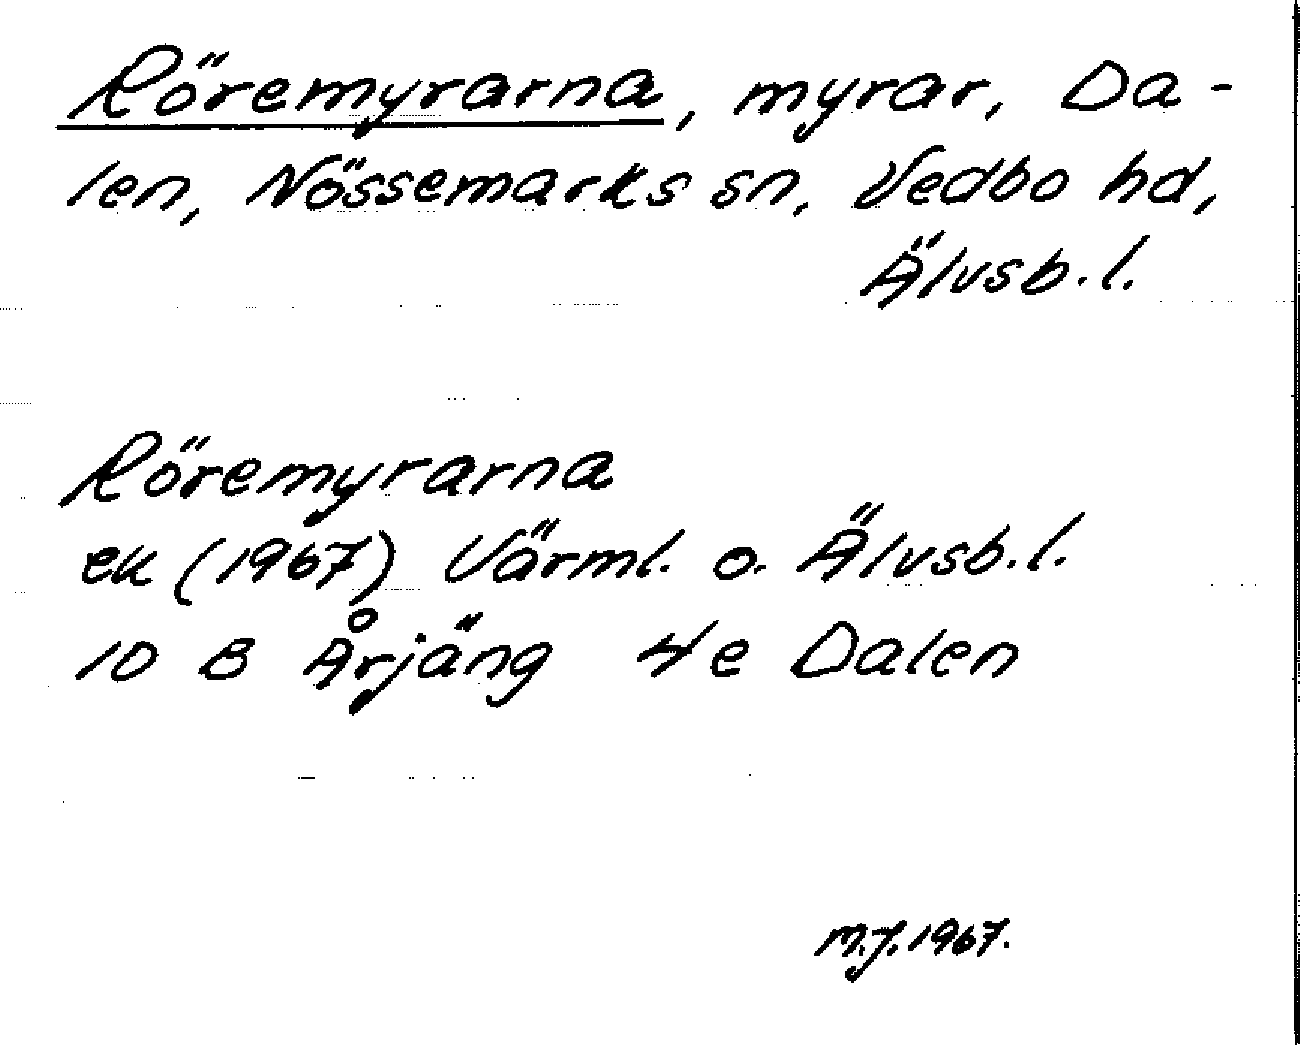 Röremyrarna, myrar, Da-
len, Nössemarks sn, Vedbo hd,
Älvsb.l.
Röremyrarna
ek (1967) Värml. o. Älvsb.l.
10 B Årjäng 4e Dalen
M.J. 1967.